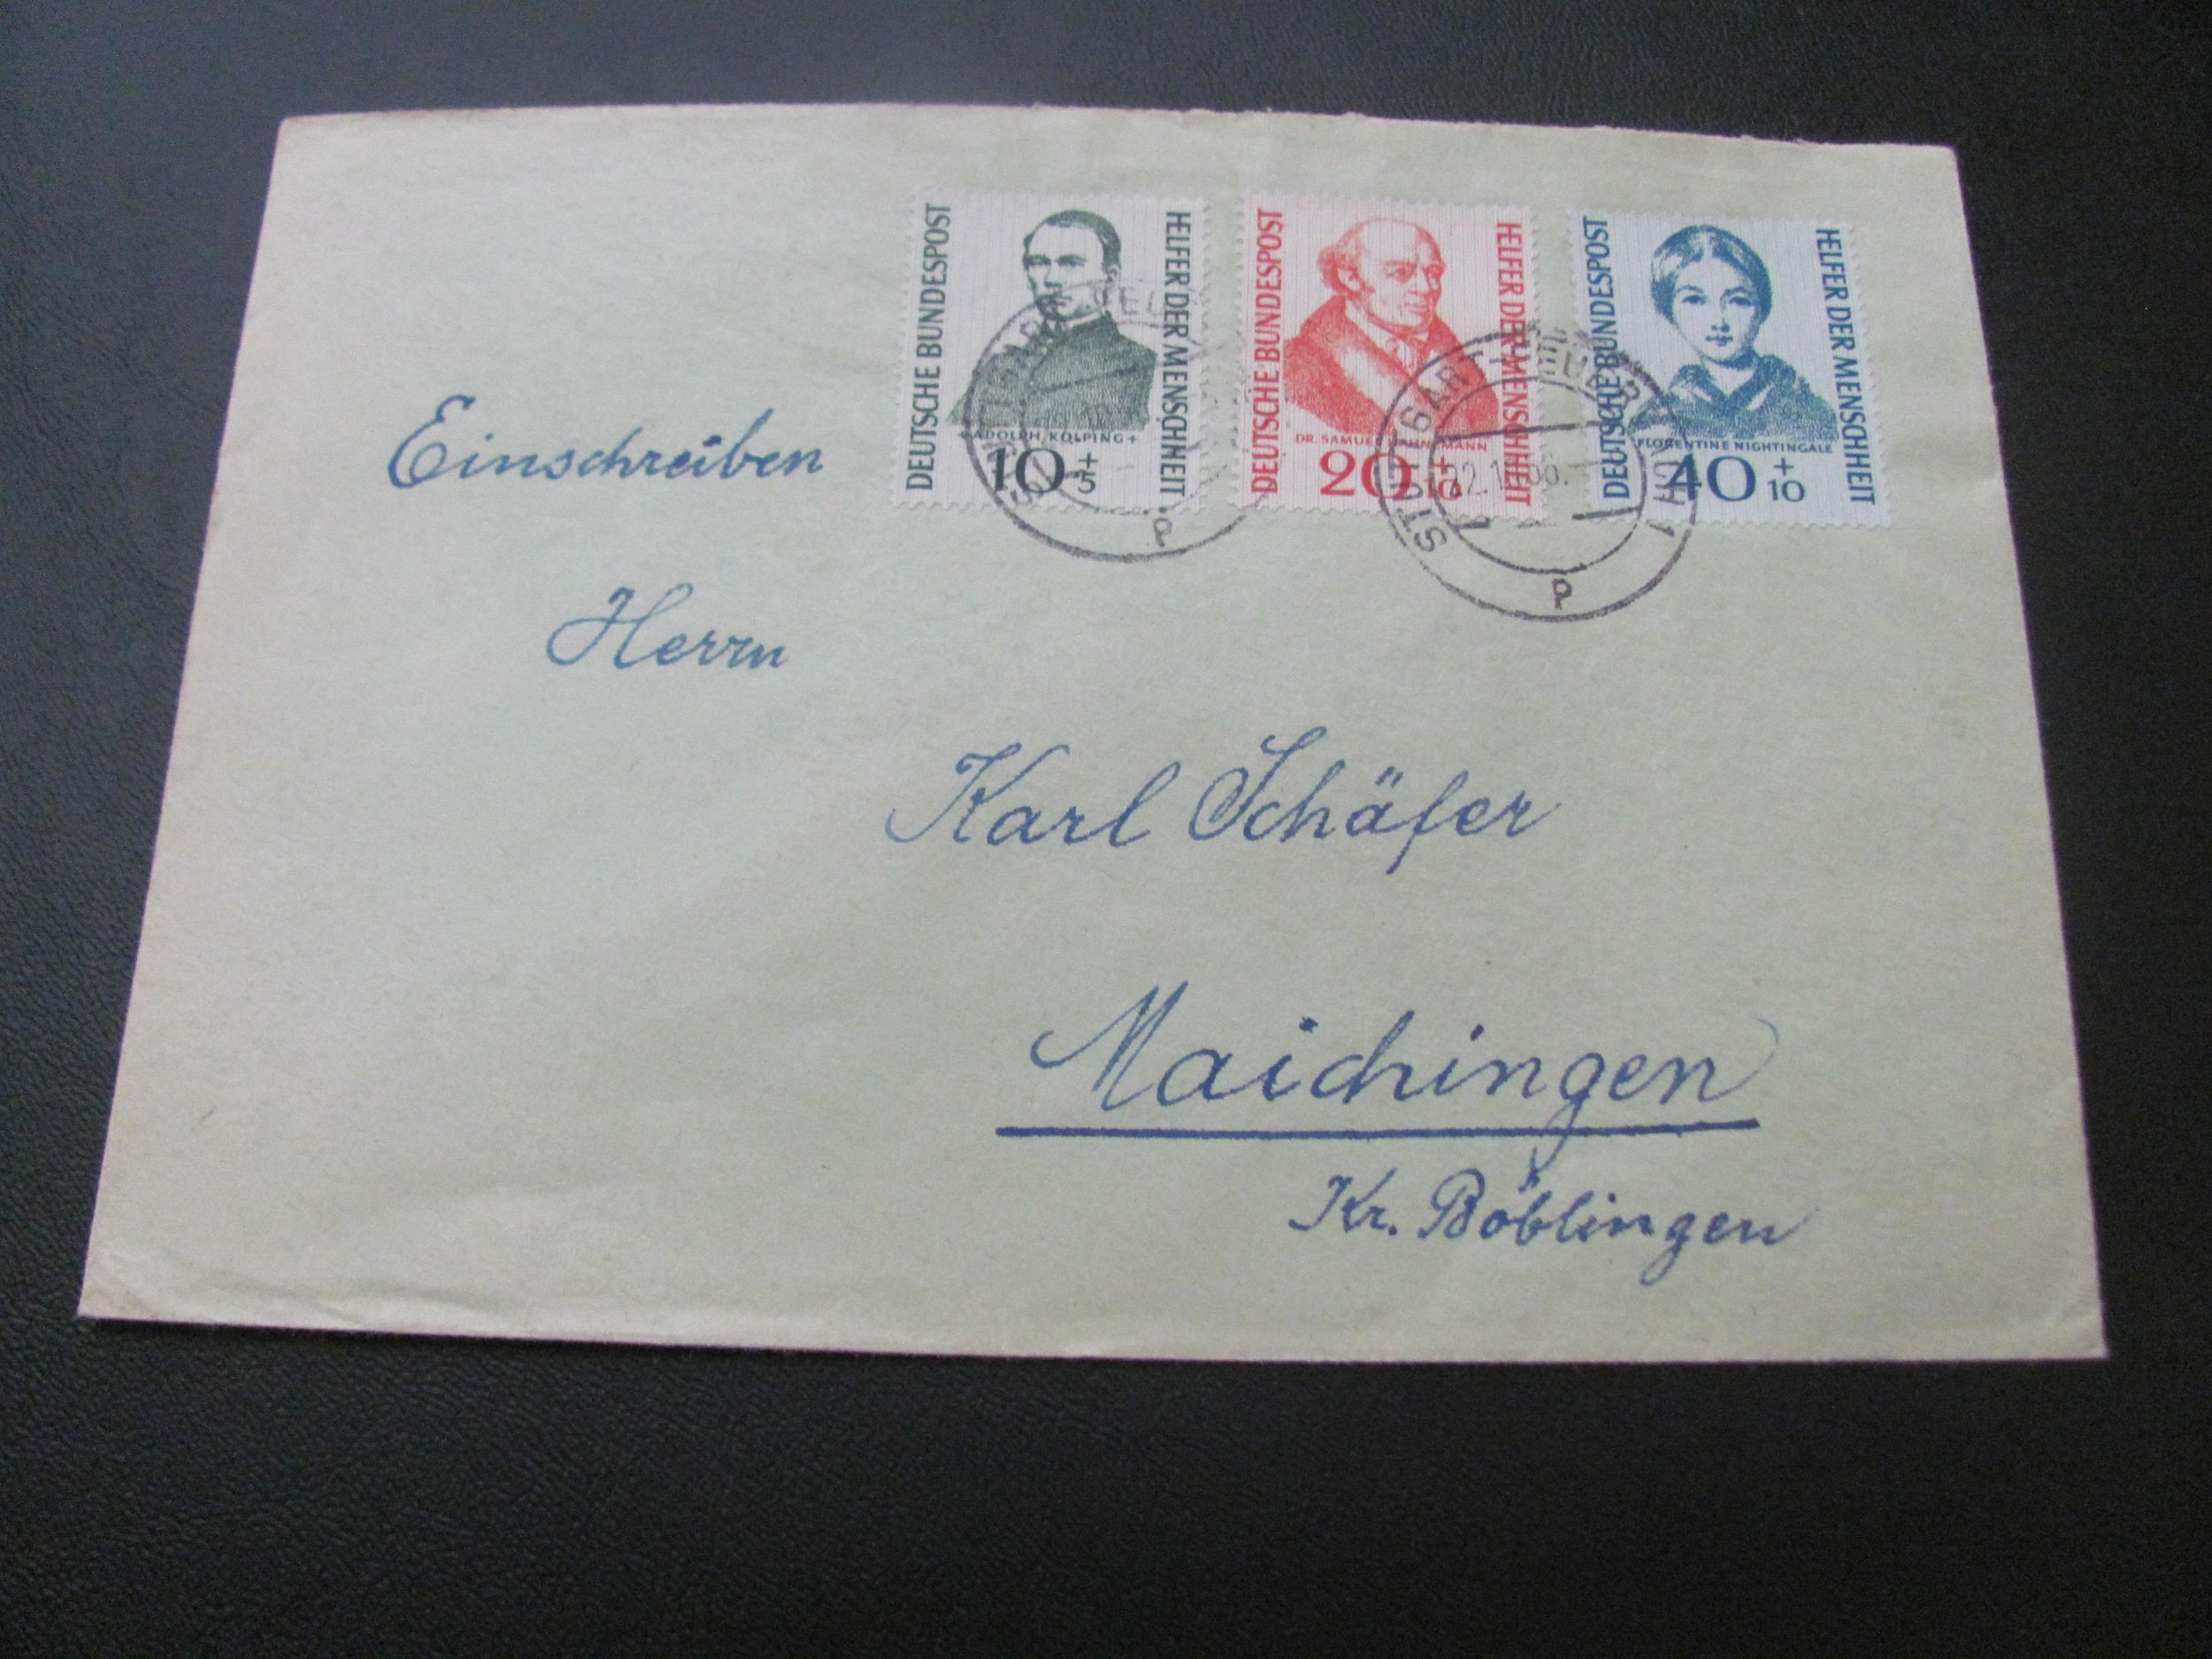 DEUTSCHE BUNDESPOST
HELFER DER MENSCHHEIT
ADOLPH KOLPING +
10 + 5
DEUTSCHE BUNDESPOST
HELFER DER MENSCHHEIT
DR. SAMUEL HAHNEMANN
20 + 10
DEUTSCHE BUNDESPOST
HELFER DER MENSCHHEIT
FLORENTINE NIGHTINGALE
40 + 10
a
STUTTGART-FEUERBACH 1
P
Einschreiben
Herrn
Karl Schäfer
Maichingen
Kr. Böblingen